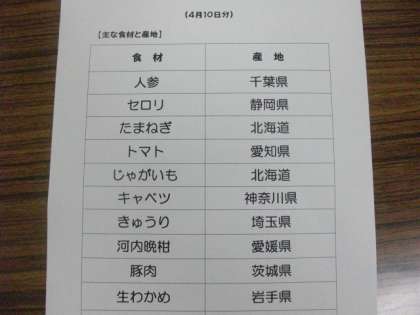 （4月10日分）
【主な食材と産地】
食　材　産　地
人参　千葉県
セロリ　静岡県
たまねぎ　北海道
トマト　愛知県
じゃがいも　北海道
キャベツ　神奈川県
きゅうり　埼玉県
河内晩柑　愛媛県
豚肉　茨城県
生わかめ　岩手県